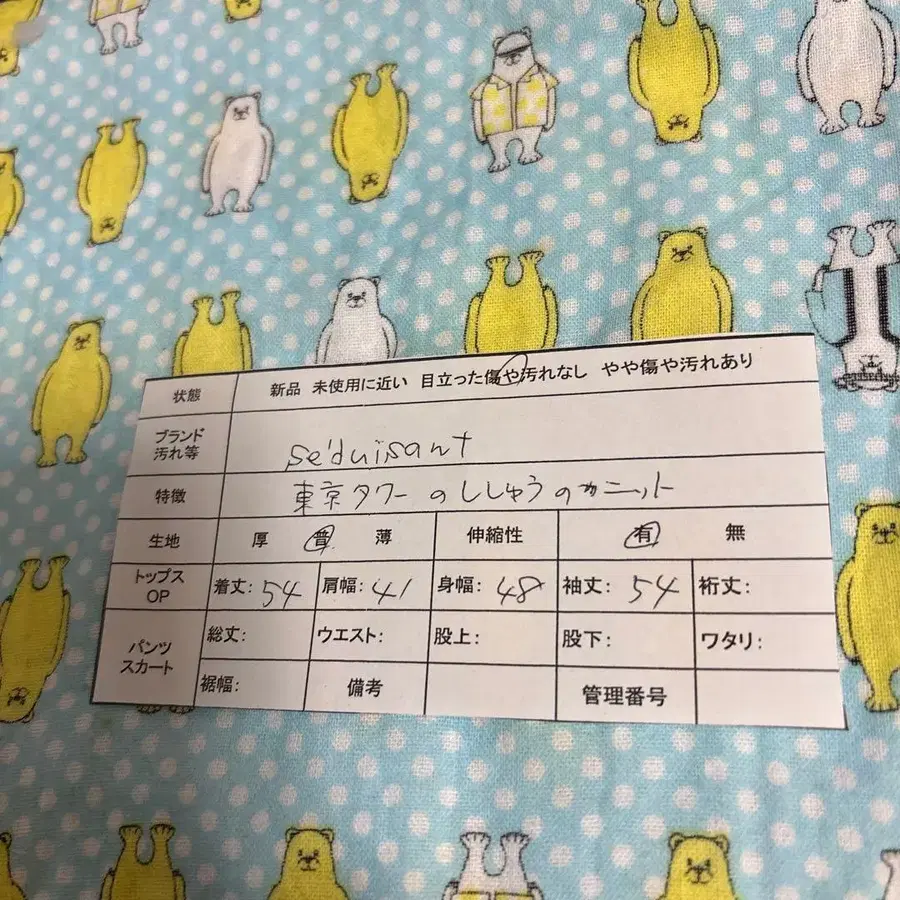 状態 新品 未使用に近い 目立った傷や汚れなし やや傷や汚れあり
ブランド
汚れ等 se'duisant
特徴 東京タワーのししゅうのニット
生地 厚 普 薄 伸縮性 有 無
トップス
OP 着丈: 54 肩幅: 41 身幅: 48 袖丈: 54 裄丈:
パンツ
スカート 総丈: ウエスト: 股上: 股下: ワタリ:
裾幅: 備考 管理番号